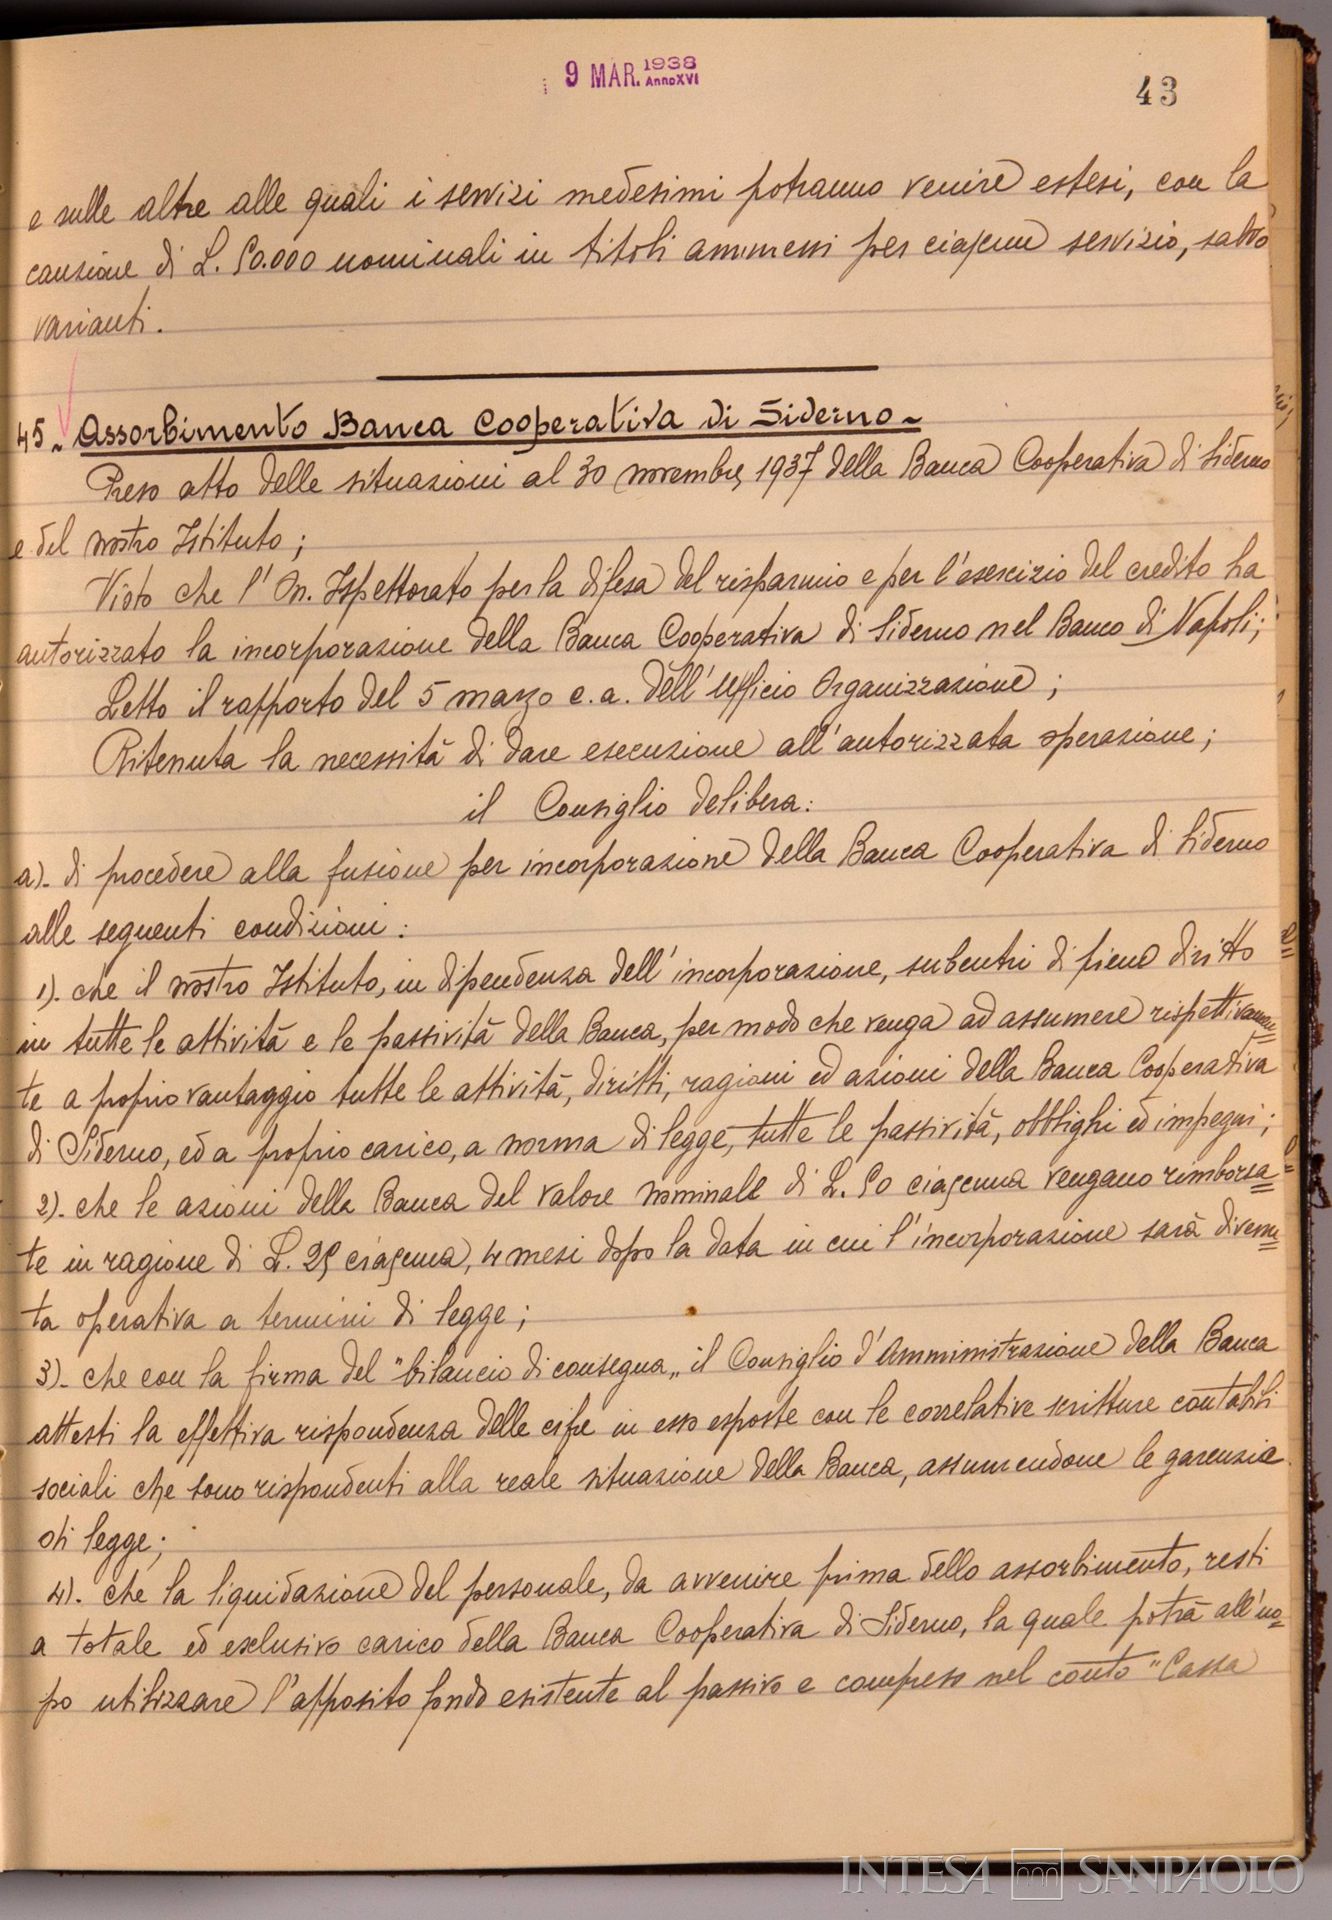 9 MAR. 1938 Anno XVI
43
e sulle altre alle quali i servizi medesimi potranno venire estesi, con la
cauzione di L. 50.000 nominali in titoli ammessi per ciascun servizio, salvo
varianti.
45 - Assorbimento Banca Cooperativa di Siderno -
Preso atto delle situazioni al 30 novembre 1937 della Banca Cooperativa di Siderno
e del nostro Istituto;
Visto che l'On. Ispettorato per la difesa del risparmio e per l'esercizio del credito ha
autorizzato la incorporazione della Banca Cooperativa di Siderno nel Banco di Napoli;
Letto il rapporto del 5 marzo c.a. dell'Ufficio Organizzazione;
Ritenuta la necessità di dare esecuzione all'autorizzata operazione;
il Consiglio delibera:
a)- di procedere alla fusione per incorporazione della Banca Cooperativa di Siderno
alle seguenti condizioni:
1)- che il nostro Istituto, in dipendenza dell'incorporazione, subentri di pieno diritto
in tutte le attività e le passività della Banca, per modo che venga ad assumere rispettivamen=
te a proprio vantaggio tutte le attività, diritti, ragioni ed azioni della Banca Cooperativa
di Siderno, ed a proprio carico, a norma di legge, tutte le passività, obblighi ed impegni;
2)- che le azioni della Banca del valore nominale di L. 50 ciascuna vengano rimborsa=
te in ragione di L. 25 ciascuna, 4 mesi dopo la data in cui l'incorporazione sarà divenu=
ta operativa a termini di legge;
3)- che con la firma del "bilancio di consegna„ il Consiglio d'Amministrazione della Banca
attesti la effettiva rispondenza delle cifre in esso esposte con le correlative scritture contabili
sociali che sono rispondenti alla reale situazione della Banca, assumendone le garenzie
di legge;
4)- che la liquidazione del personale, da avvenire prima dello assorbimento, resti
a totale ed esclusivo carico della Banca Cooperativa di Siderno, la quale potrà all'uo=
po utilizzare l'apposito fondo esistente al passivo e compreso nel conto "Cassa
INTESA SANPAOLO